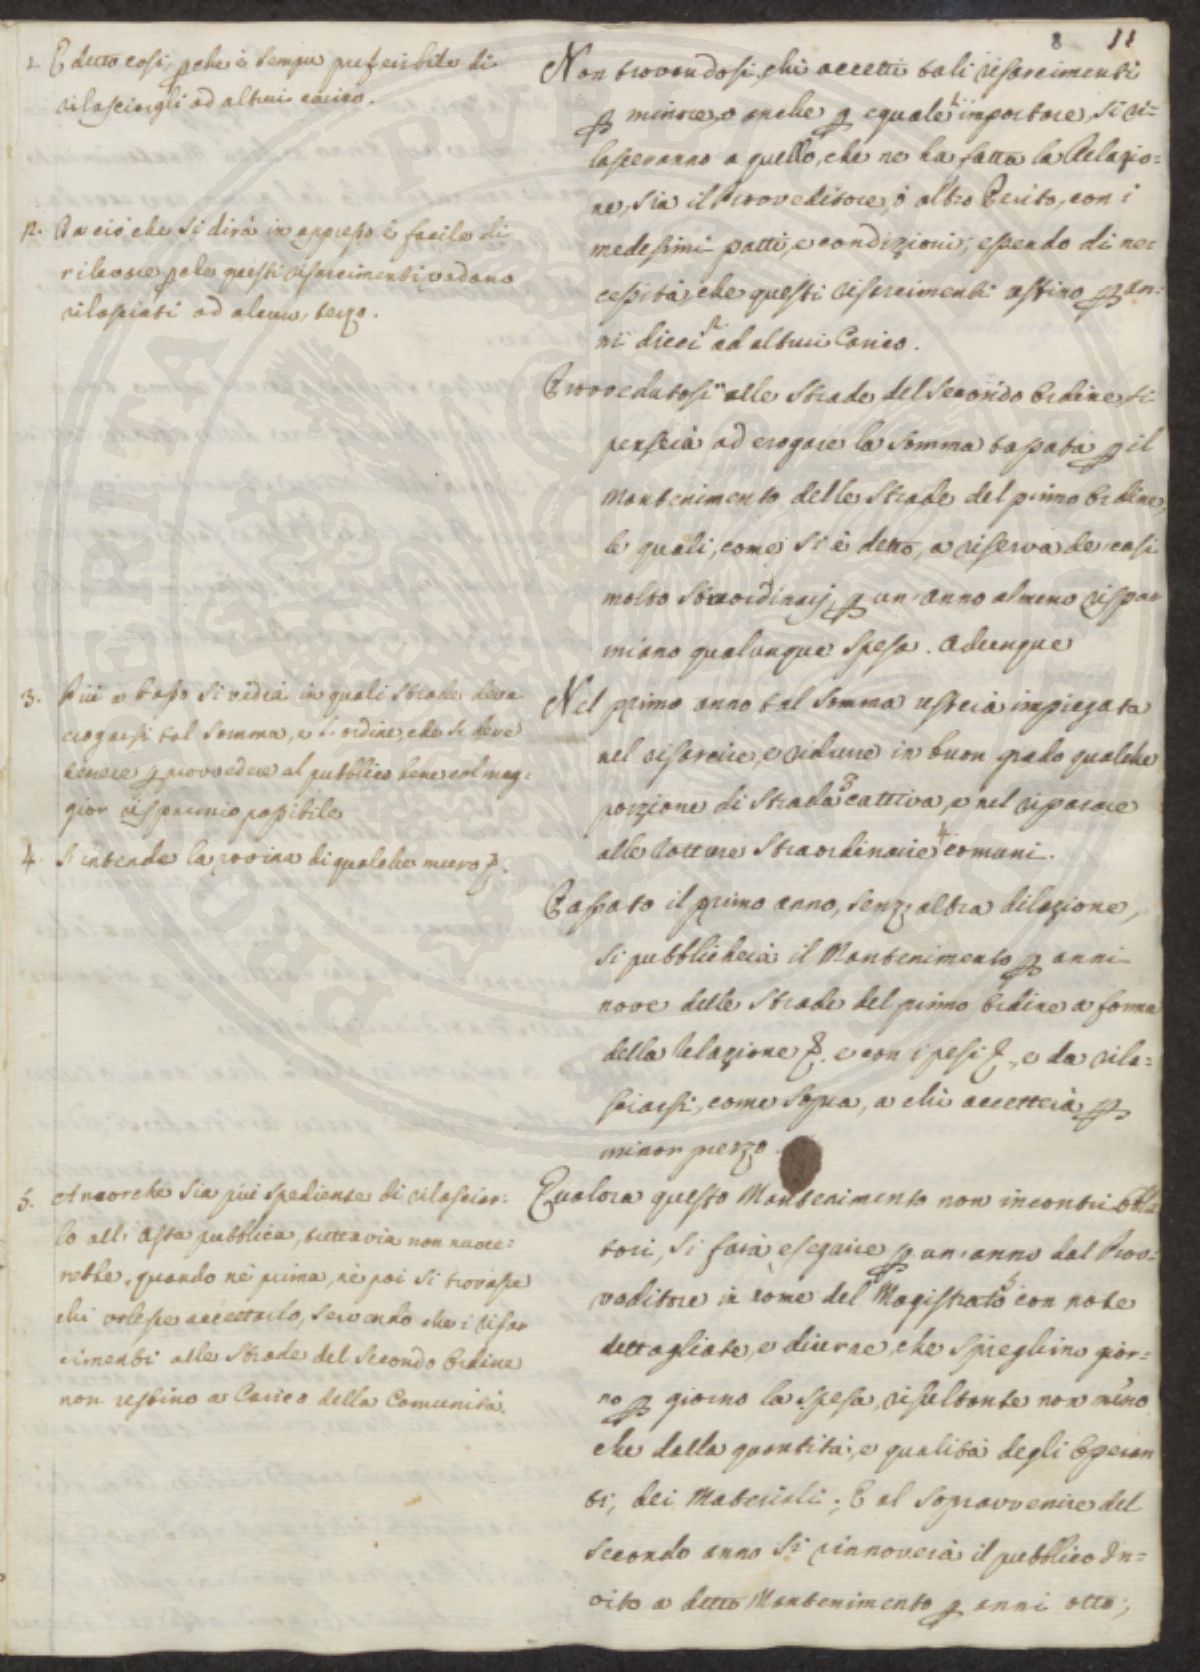 8 11
1. E detto così, p che è sempre preferibile di
rilasciargli ad altrui carico.
2. Da ciò che si dirà in appresso è facile di
rilevare p che questi risarcimenti vadano
rilasciati ad alcun, terzo.
3. Più a basso si vedrà in quali Strade deva
erogarsi tal somma, e l'ordine, che si deve
tenere p provvedere al pubblico bene col mag=
gior risparmio possibile
4. S'intende la rovina di qualche muro &.
5. Ancorchè sia più spediente di rilasciar=
lo all' Asta pubblica, tuttavia non nuoce=
rebbe, quando nè prima, nè poi si trovasse
chi volesse accettarlo, servendo che i risar
cimenti alle Strade del Secondo Ordine
non restino a Carico della Comunità.
Non trovandosi, chi accetti tali risarcimenti
p minore, o anche p eguale 1 importare, si ri=
lasceranno a quello, che ne ha fatta la Relazio=
ne, sia il Provveditore, ò altro Perito, con i
medesimi patti, e condizioni; essendo di nec
cessità, che questi risarcimenti restino p an=
ni dieci 2 ad altrui Carico.
Provvedutosi alle Strade del Secondo Ordine, si
penserà ad erogare la Somma tassata p il
Mantenimento delle Strade del primo Ordine,
le quali, come si è detto, a riserva de casi
molto straordinarj, p un' anno almeno rispar
miano qualunque spesa. Adunque
Nel primo anno tal Somma resterà impiegata
nel risarcire, e ridurre in buon grado qualche
porzione di Strada 3 cattiva, e nel riparare
alle rotture Straordinarie 4 comuni.
Passato il primo anno, senz' altra dilazione,
si pubblicherà il Mantenimento p anni
nove delle Strade del primo Ordine a forma
della Relazione &. e con i pesi &., e da rila=
sciarsi, come sopra, a chi accetterà p
minor prezzo.
Qualora questo Mantenimento non incontri Obla
tori, si farà eseguire p un' anno dal Prov=
veditore in nome del Magistrato 5 con note
dettagliate, e diurne, che spieghino gior=
no p giorno la spesa, risultante non meno
che dalla quantità, e qualità degli Operan
ti, dei Materiali; E al sopravvenire del
Secondo anno si rinnoverà il pubblico In=
vito a detto Mantenimento p anni otto;